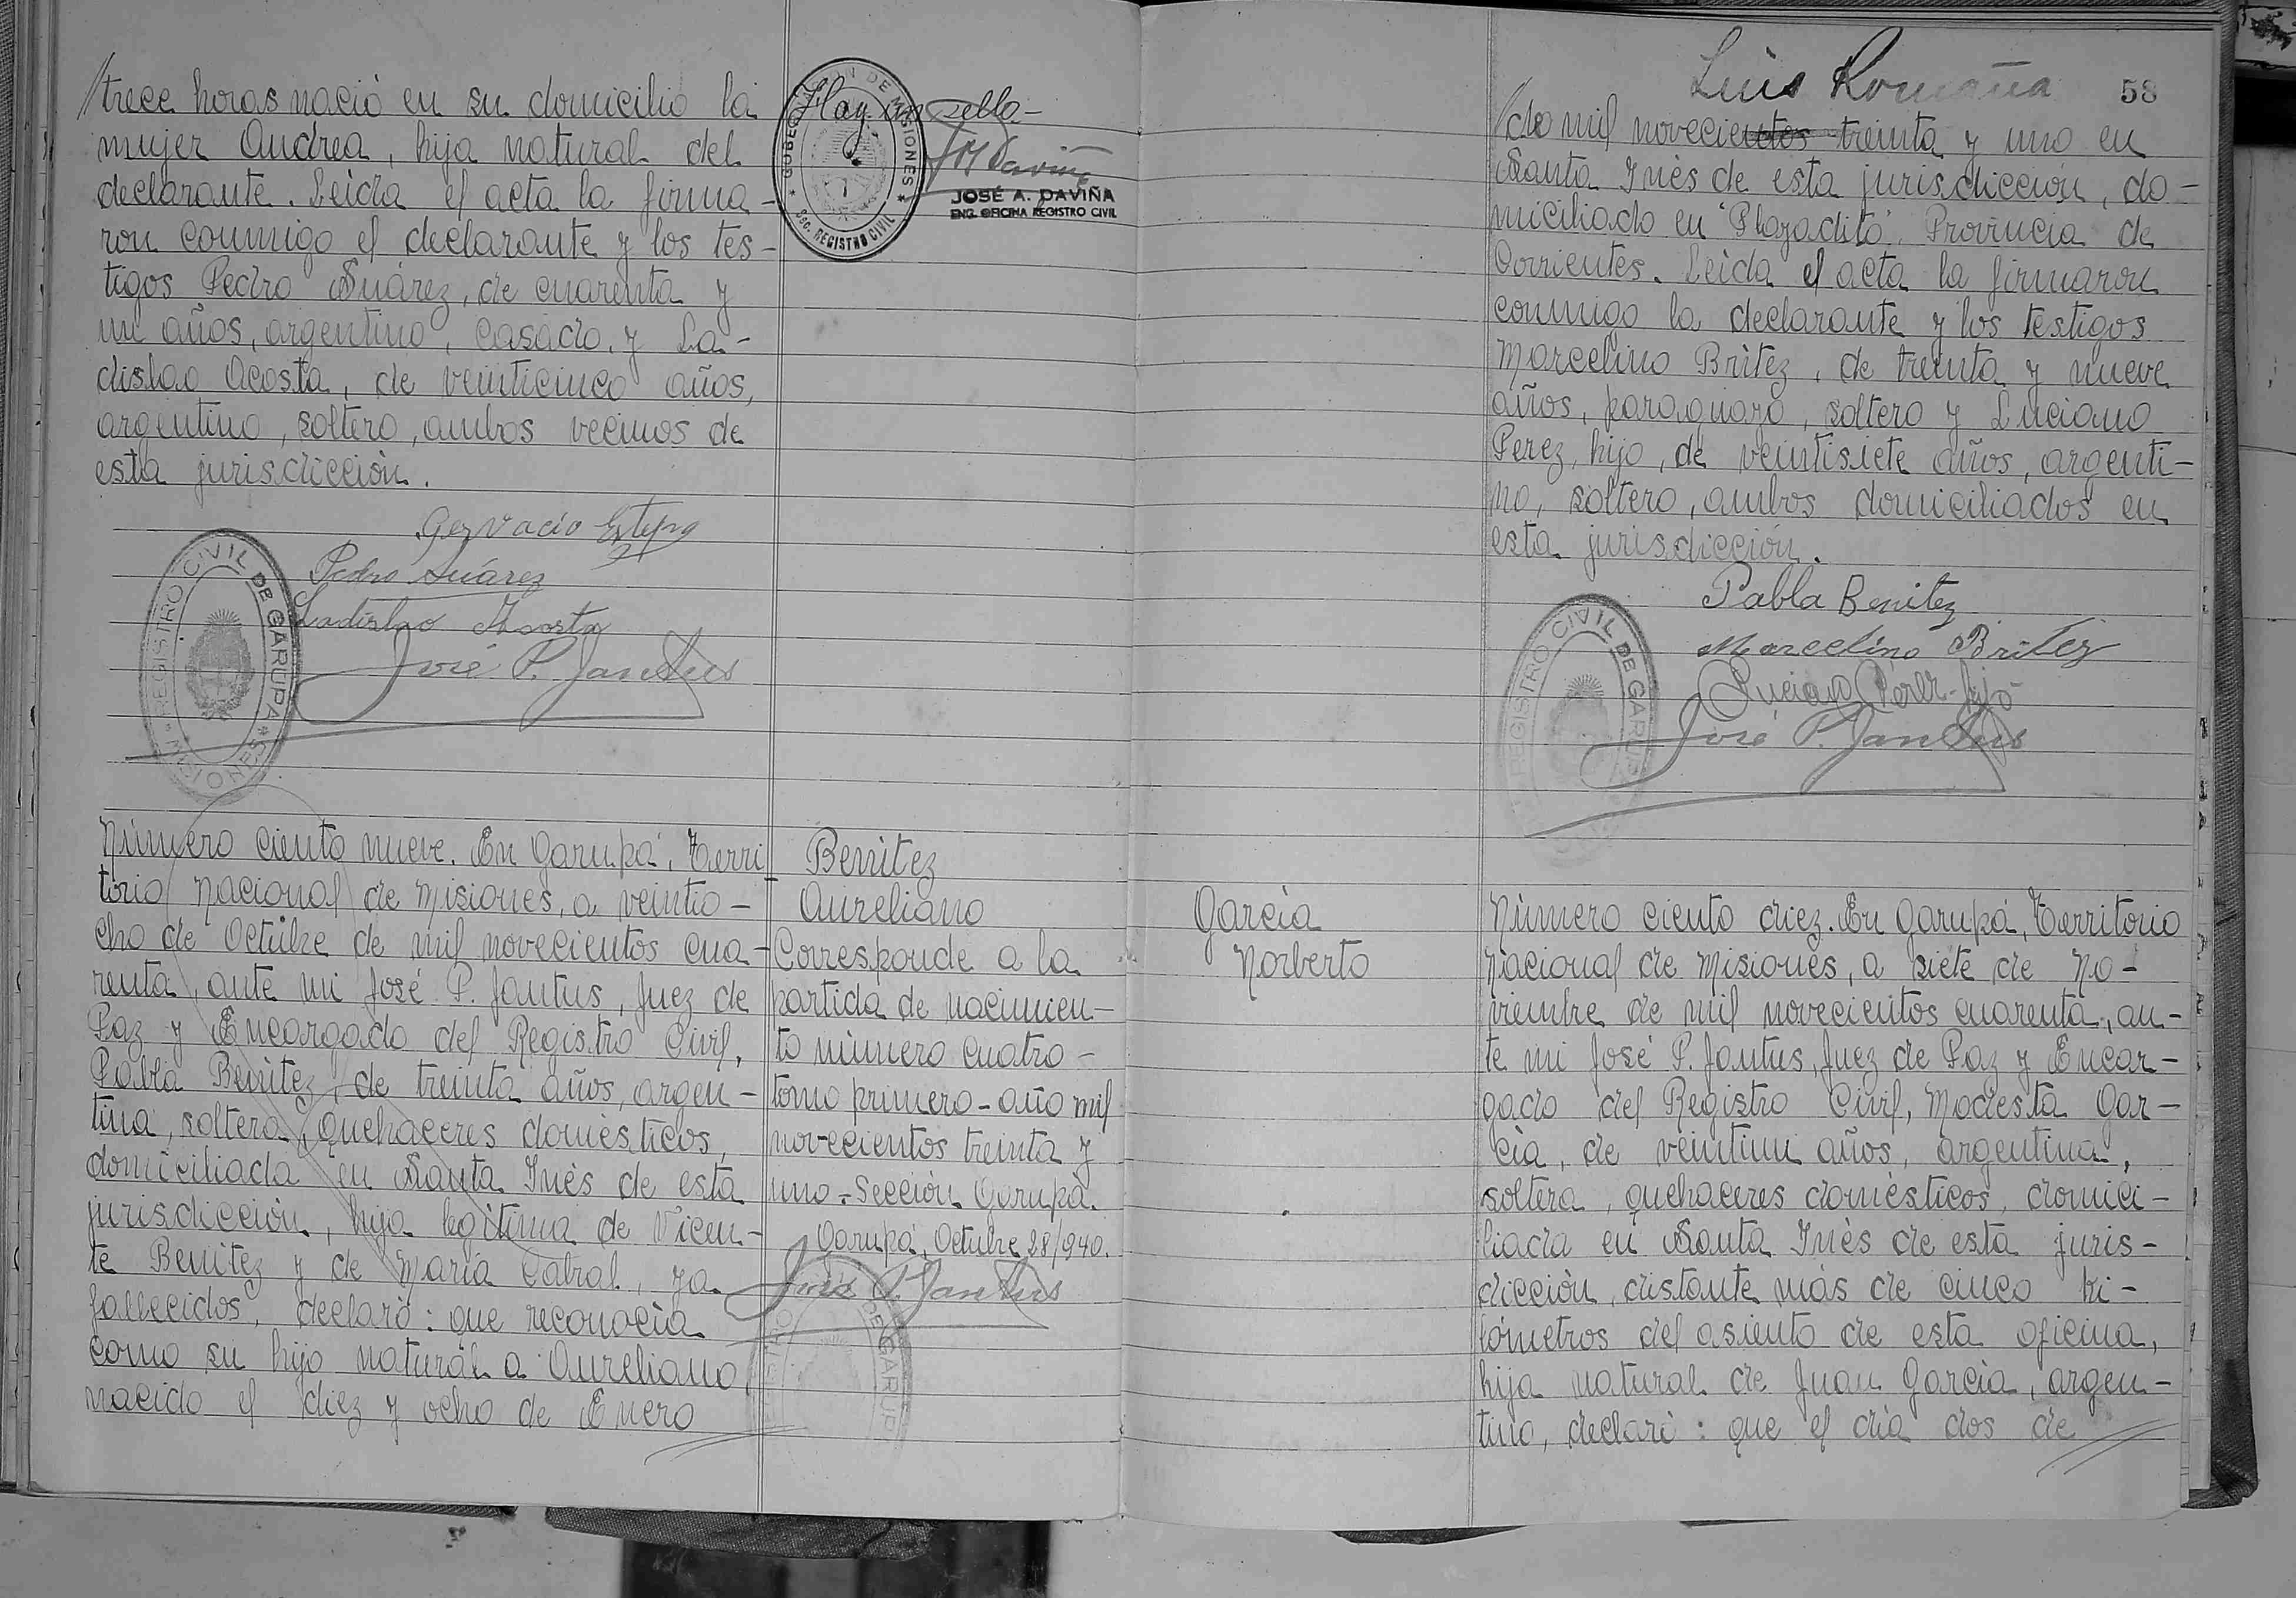 trece horas nació en su domicilio la
mujer Andrea, hija natural del
declarante. Leida el acta la firma-
ron conmigo el declarante y los tes-
tigos Pedro Suárez, de cuarenta y
un años, argentino, casado, y La-
dislao Acosta, de veinticinco años,
argentino, soltero, ambos vecinos de
esta jurisdicción.
Gervacio
Pedro Suárez
Ladislao Acosta
José P. Jantus
REGISTRO CIVIL DE GARUPA
MISIONES
Hay un sello-
GOBERNACION DE MISIONES
Sec. REGISTRO CIVIL
JOSÉ A. DAVIÑA
ENC. OFICINA REGISTRO CIVIL
Número ciento nueve. En Garupá, Terri-
torio Nacional de Misiones, a veintio-
cho de Octubre de mil novecientos cua-
renta, ante mi José P. Jantus, Juez de
Paz y Encargado del Registro Civil,
Pabla Benitez, de treinta años, argen-
tina, soltera, quehaceres domésticos,
domiciliada en Santa Inés de esta
jurisdicción, hija legitima de Vicen-
te Benitez y de Maria Cabral, ya
fallecidos, declaró: que reconocia
como su hijo natural a Aureliano,
nacido el diez y ocho de Enero
Benitez
Aureliano
Corresponde a la
partida de nacimien-
to número cuatro-
tomo primero-año mil
novecientos treinta y
uno-Sección Garupá.
Garupá, Octubre 28/940.
José P. Jantus
DE GARUP
Luis Romaña
58
de mil novecientos treinta y uno en
Santa Inés de esta jurisdicción, do-
miciliado en "Playadito", Provincia de
Corrientes. Leida el acta la firmaron
conmigo la declarante y los testigos
Marcelino Britez, de treinta y nueve
años, paraguayo, soltero y Luciano
Perez, hijo, de veintisiete años, argenti-
no, soltero, ambos domiciliados en
esta jurisdicción.
Pabla Benitez
Marcelino Britez
Luciano Perez-hijo
José P. Jantus
REGISTRO CIVIL DE GARUPA
García
Norberto
Número ciento diez. En Garupá, Territorio
Nacional de Misiones, a siete de No-
viembre de mil novecientos cuarenta, an-
te mi José P. Jantus, Juez de Paz y Encar-
gado del Registro Civil, Modesta Gar-
cía, de veintiun años, argentina,
soltera, quehaceres domésticos, domici-
liada en Santa Inés de esta juris-
dicción, distante más de cinco ki-
lómetros del asiento de esta oficina,
hija natural de Juan García, argen-
tino, declaró: que el día dos de